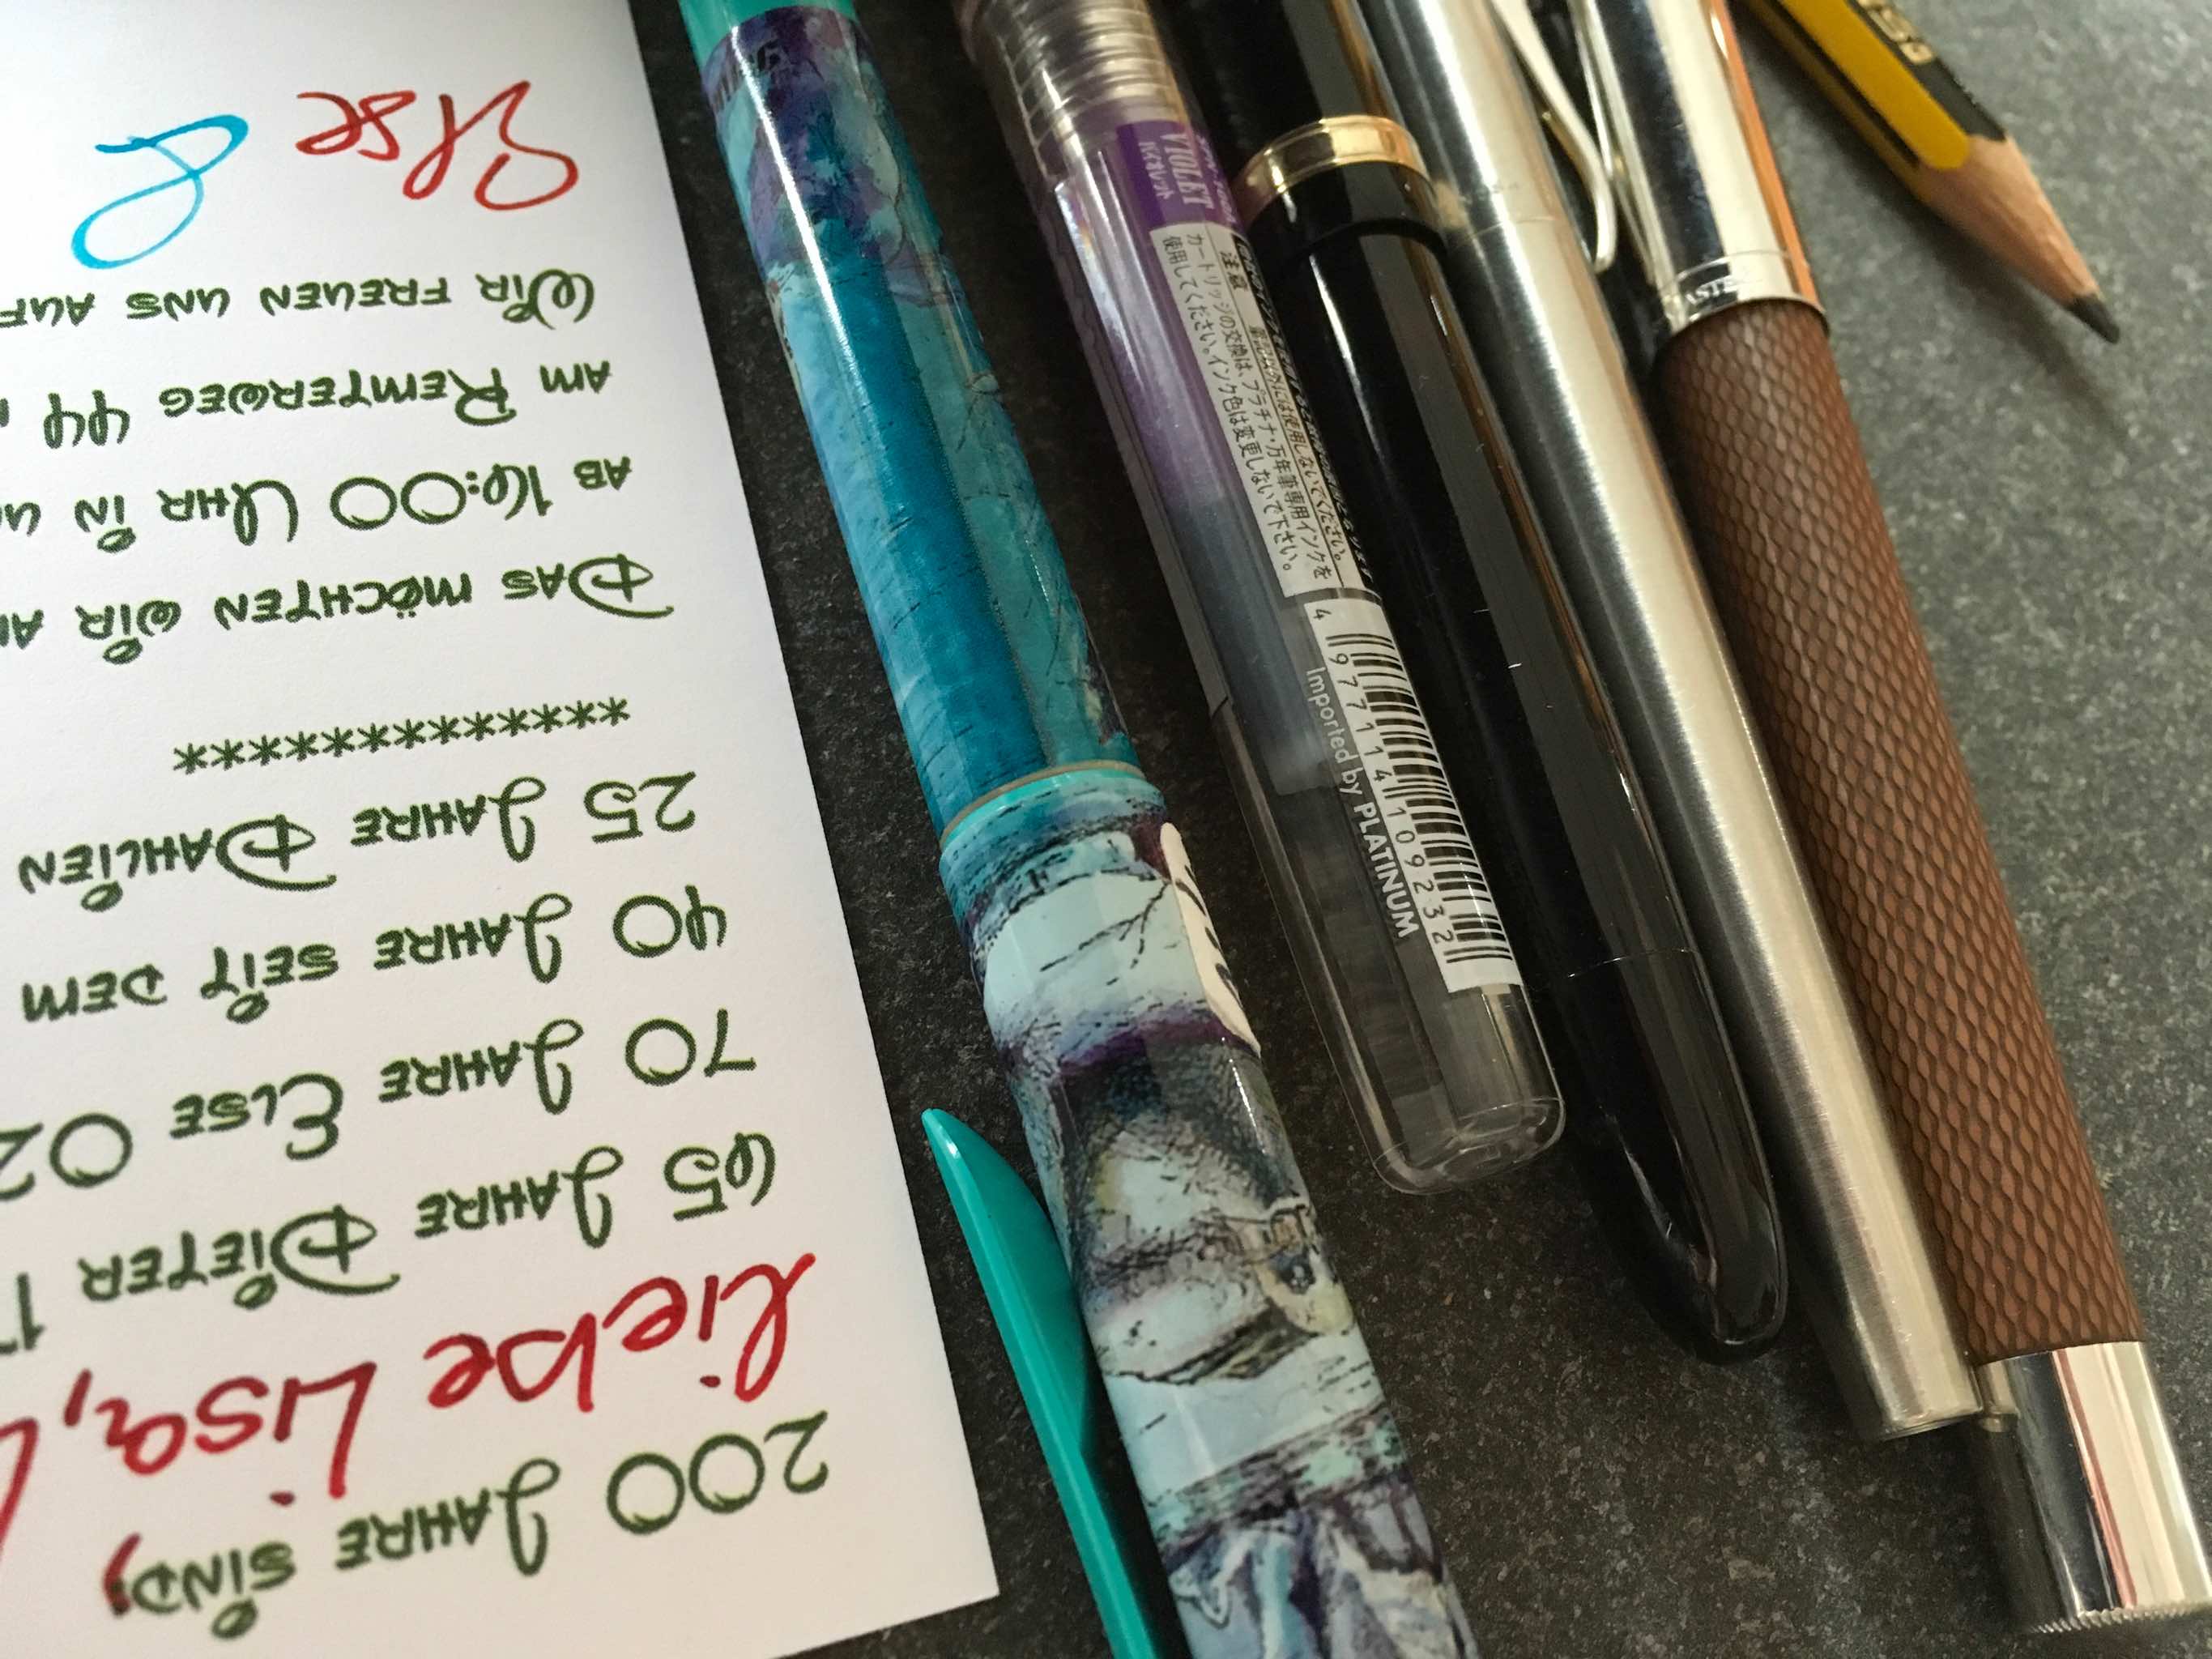 200 JAHRE SIND:
Liebe Lisa,
65 JAHRE DIETER 1
70 JAHRE ELSE 02
40 JAHRE SEIT DEM
25 JAHRE DAHLIEN
*************
DAS MÖCHTEN WIR
AB 16:00 UHR IN
AM REMTERWEG 44
WIR FREUEN UNS AUF
Else &
VIOLET
バイオレット
注意
カートリッジの交換は、プラチナ・万年筆専用インクを
使用してください。インク色は変更しないで下さい。
筆記以外には使用しないでください。
4 977114 109232
Imported by PLATINUM